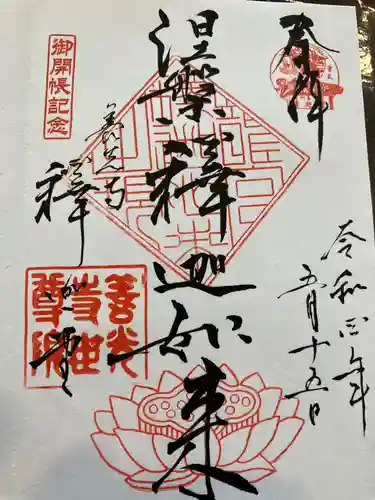 奉拝
令和四年
五月十五日
涅槃釋迦如来
善光寺
釋迦堂
御開帳記念
善光
寺世
尊院